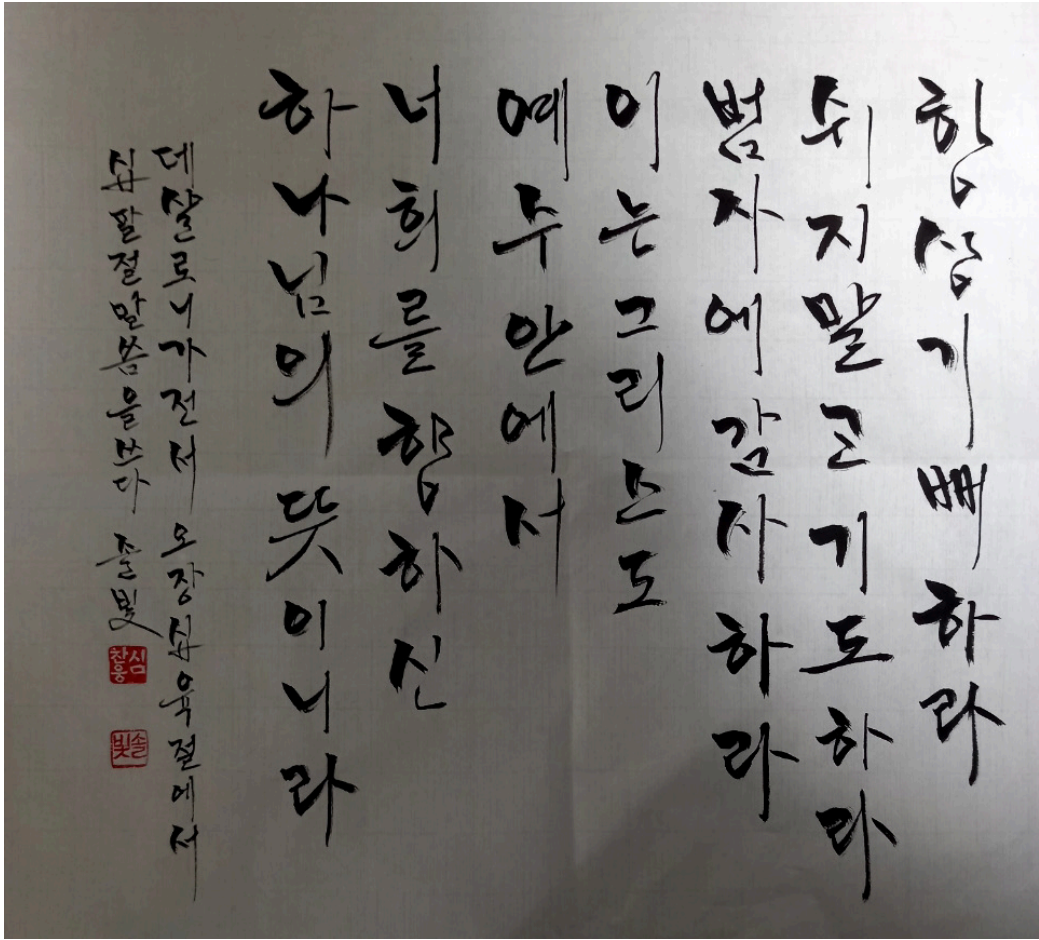 항상기뻐하라
쉬지말고기도하라
범사에감사하라
이는그리스도
예수안에서
너희를향하신
하나님의 뜻이니라
데살로니가전서 오장십육절에서
십팔절말씀을쓰다 솔빛
솔빛